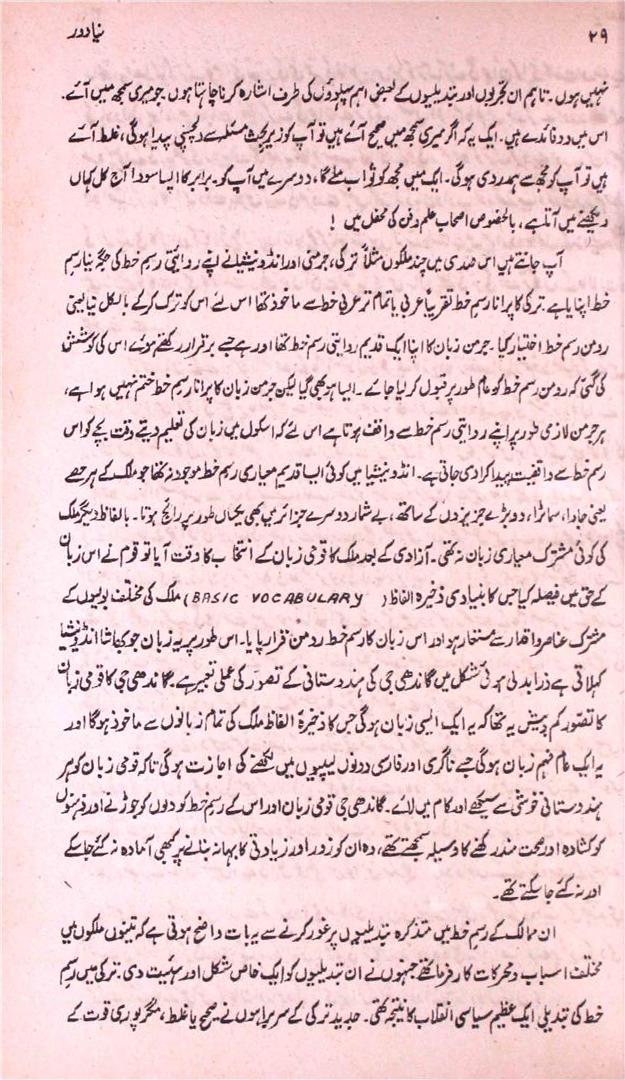 ۲۹ نیا دور
نہیں ہوں۔ تاہم ان تجربوں اور تبدیلیوں کے بعض اہم پہلوؤں کی طرف اشارہ کرنا چاہتا ہوں۔ جو میری سمجھ میں آئے۔
اس میں دو فائدے ہیں۔ ایک یہ کہ اگر میری سمجھ میں صحیح آئے ہیں تو آپ کو زیر بحث مسئلہ سے دلچسپی پیدا ہوگی، غلط آئے
ہیں تو آپ کو مجھ سے ہمدردی ہوگی۔ ایک میں مجھ کو ثواب ملے گا، دوسرے میں آپ کو۔ برابر کا ایسا سودا آج کل کہاں
دیکھنے میں آتا ہے، بالخصوص اصحاب علم و فن کی محفل میں!
آپ جانتے ہیں اس صدی میں چند ملکوں مثلاً ترکی، جرمنی اور انڈونیشیا نے اپنے روایتی رسم خط کی جگہ نیا رسم
خط اپنایا ہے۔ ترکی کا پرانا رسم خط تقریباً عربی یا تمام تر عربی خط سے ماخوذ تھا اس لئے اس کو ترک کر کے بالکل نیا یعنی
رومن رسم خط اختیار کیا۔ جرمن زبان کا اپنا ایک قدیم روایتی رسم خط تھا اور ہے جسے برقرار رکھتے ہوئے اس کی کوشش
کی گئی کہ رومن رسم خط کو عام طور پر قبول کر لیا جائے۔ ایسا ہو بھی گیا لیکن جرمن زبان کا پرانا رسم خط ختم نہیں ہوا ہے،
ہر جرمن لازمی طور پر اپنے روایتی رسم خط سے واقف ہوتا ہے اس لئے کہ اسکول میں زبان کی تعلیم دیتے وقت بچے کو اس
رسم خط سے واقفیت پیدا کرا دی جاتی ہے۔ انڈونیشیا میں کوئی ایسا قدیم معیاری رسم خط موجود نہ تھا جو ملک کے ہر حصے
یعنی جاوا، سماٹرا، دو بڑے جزیروں کے ساتھ، بے شمار دوسرے جزائر میں بھی یکساں طور پر رائج ہوتا۔ بالفاظ دیگر ملک
کی کوئی مشترک معیاری زبان نہ تھی۔ آزادی کے بعد ملک کا قومی زبان کے انتخاب کا وقت آیا تو قوم نے اس زبان
کے حق میں فیصلہ کیا جس کا بنیادی ذخیرہ الفاظ (BASIC VOCABULARY) ملک کی مختلف بولیوں کے
مشترک عناصر و اقدار سے مستعار ہو اور اس زبان کا رسم خط رومن قرار پایا۔ اس طور پر یہ زبان جو بھاشا انڈونیشیا
کہلاتی ہے ذرا بدلی ہوئی شکل میں گاندھی جی کی ہندوستانی کے تصور کی عملی تعبیر ہے۔ گاندھی جی کا قومی زبان
کا تصور کم و بیش یہ تھا کہ یہ ایک ایسی زبان ہوگی جس کا ذخیرۂ الفاظ ملک کی تمام زبانوں سے ماخوذ ہوگا اور
یہ ایک عام فہم زبان ہوگی جسے ناگری اور فارسی دونوں لیپیوں میں لکھنے کی اجازت ہوگی تاکہ قومی زبان کو ہر
ہندوستانی خوشی سے سیکھے اور کام میں لائے۔ گاندھی جی قومی زبان اور اس کے رسم خط کو دلوں کو جوڑنے اور ذہنوں
کو کشادہ اور صحت مند رکھنے کا وسیلہ سمجھتے تھے، وہ ان کو زور اور زیادتی کا بہانہ بنانے پر کبھی آمادہ نہ کئے جا سکے
اور نہ کئے جا سکتے تھے۔
ان ممالک کے رسم خط میں متذکرہ تبدیلیوں پر غور کرنے سے یہ بات واضح ہوتی ہے کہ تینوں ملکوں میں
مختلف اسباب و محرکات کارفرما تھے جنہوں نے ان تبدیلیوں کو ایک خاص شکل اور ہیئت دی۔ ترکی میں رسم
خط کی تبدیلی ایک عظیم سیاسی انقلاب کا نتیجہ تھی۔ جدید ترکی کے سربراہوں نے صحیح یا غلط، مگر پوری قوت کے